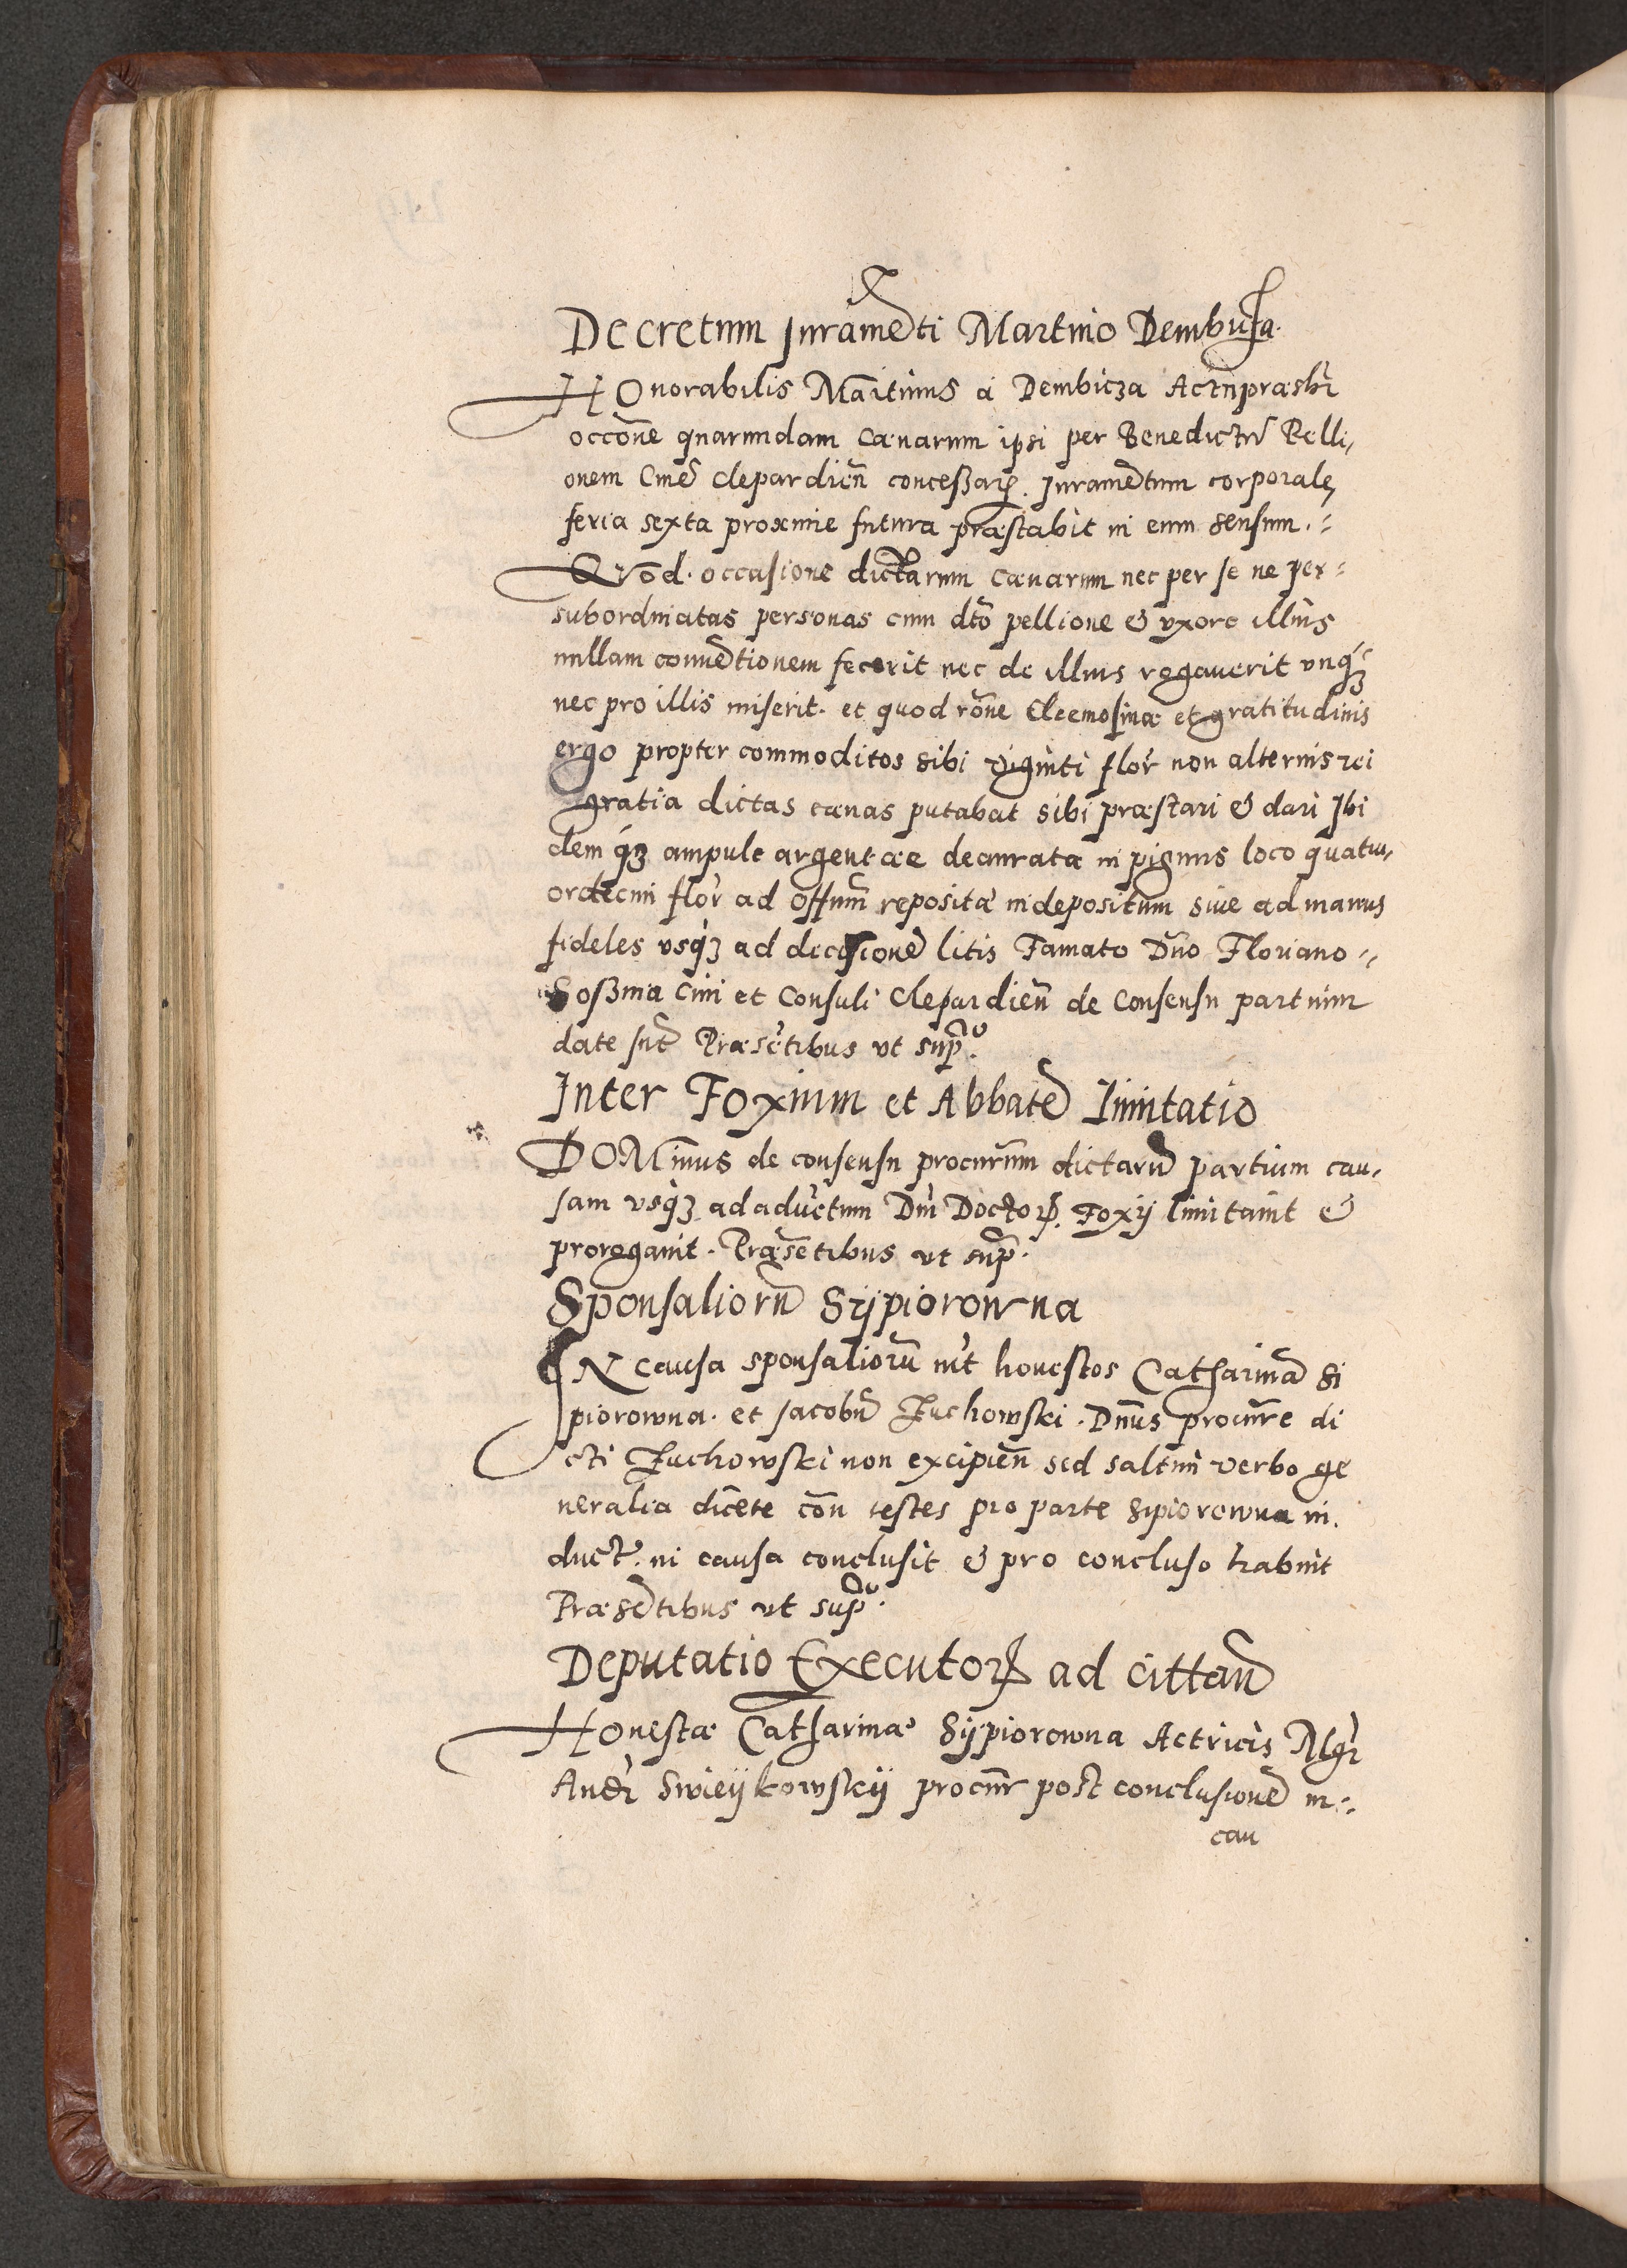 Decretum Juramẽti Martino Dembusa.
HOnorabilis Martinus a Dembicza Actn praesbr
occõne quarundam caenarum ipsi per Benedictũ Pelli,
onem Cinẽ Clepardieñ conceszarꝫ. Juramẽtum corporale,
feria sexta proxime futura praestabit in eum sensum.
QVõd. occasione dictarum caenarum nec per se ne per
subordinatas personas cum dto pellione & vxore illius
nullam conuẽtionem fecerit nec de illius rogauerit vnqꝫ
nec pro illis miserit. et quod rõne Eleemosinae et gratitudinis
ergo propter commoditos sibi viginti flor non alterius rei
gratia dictas caenas putabat sibi praestari & dari Ibi
dem qꝫ ampule argentae deaurata in pignus loco quatu,
ordecim flor ad Offum reposita in depositum siue ad manus
fideles vsqꝫ ad decisionẽ litis Famato Dño Floriano
Soszma Ciui et Consuli Clepardieñ de Consensu partium
date sũt Praesẽtibus vt supꝰ.
Inter Foxium et Abbatẽ limitatio
DOMinus de consensu procurũm dictarũ partium cau,
sam vsqꝫ ad aduẽtum Dñi Doctorꝫ. Foxij limitauit &
prorogauit. Praesẽtibus vt sup̃.
Sponsaliorũ Sijpiorowna
IN causa sponsaliorũ inṫ honestos Catharinã Si
piorowna. et Jacobũ Zuchowski. Dñus procurre di
cti Zuchowski non excipieñ sed saltim verbo ge
neralia diceñte cõn testes pro parte Sipiorowna in.
duct. in causa conclusit & pro concluso habuit
Praesẽtibus vt supꝰ.
Deputatio Executorꝫ ad Cittañ
Honestae Catharinae Sijpiorowna Actricis Mgr
Andr Swieijkowskij procur post conclusionẽ in
cau